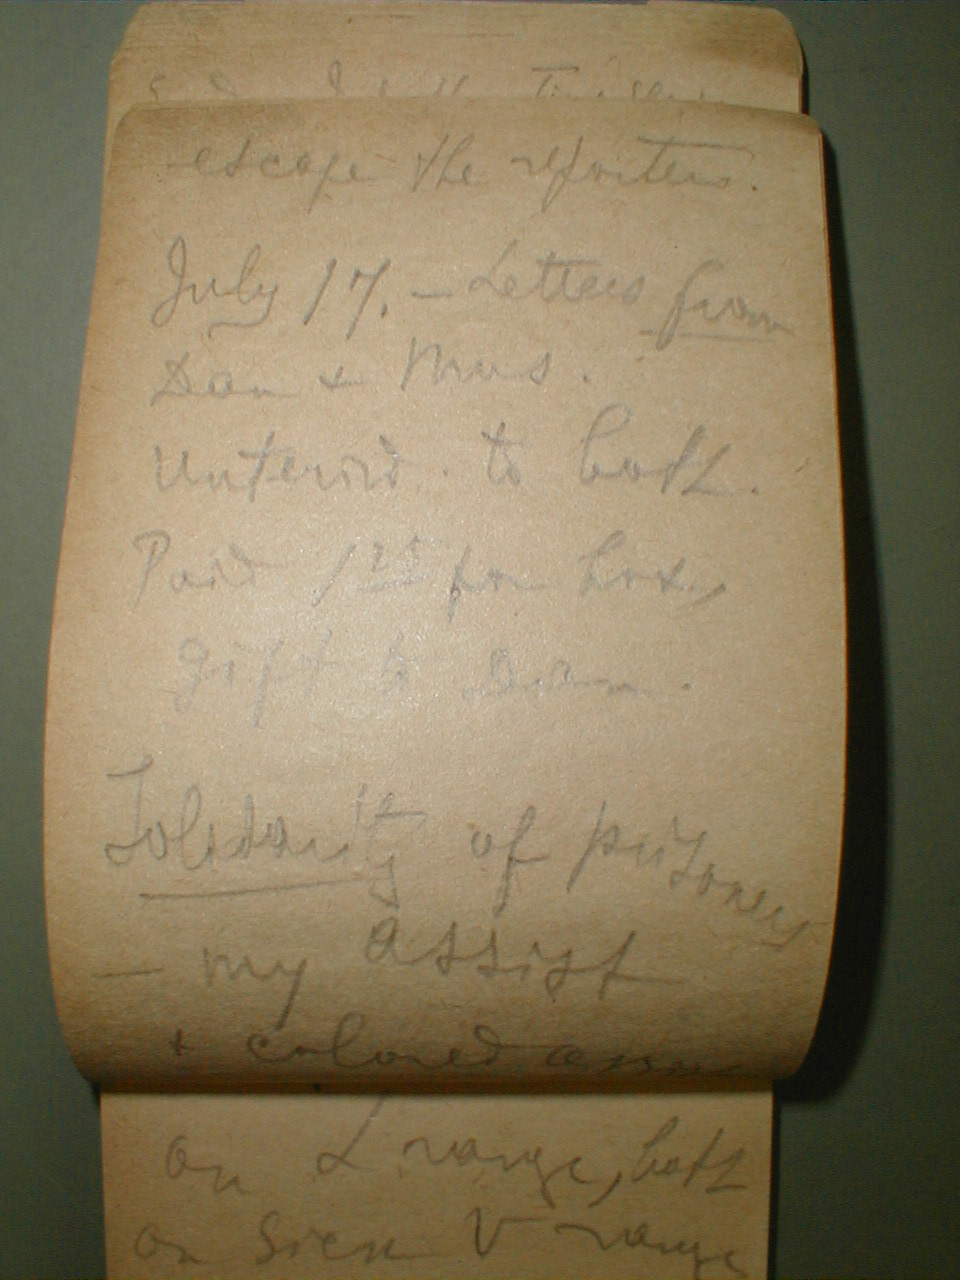 escape the reporters.
July 17. – Letters from
Dan + Mus.
Unterrid. to both.
Paid 1 25 for box,
gift to Dan.
Solidarity of prisoners
– my assist
+ colored assis
on L range, both
on Sick V range